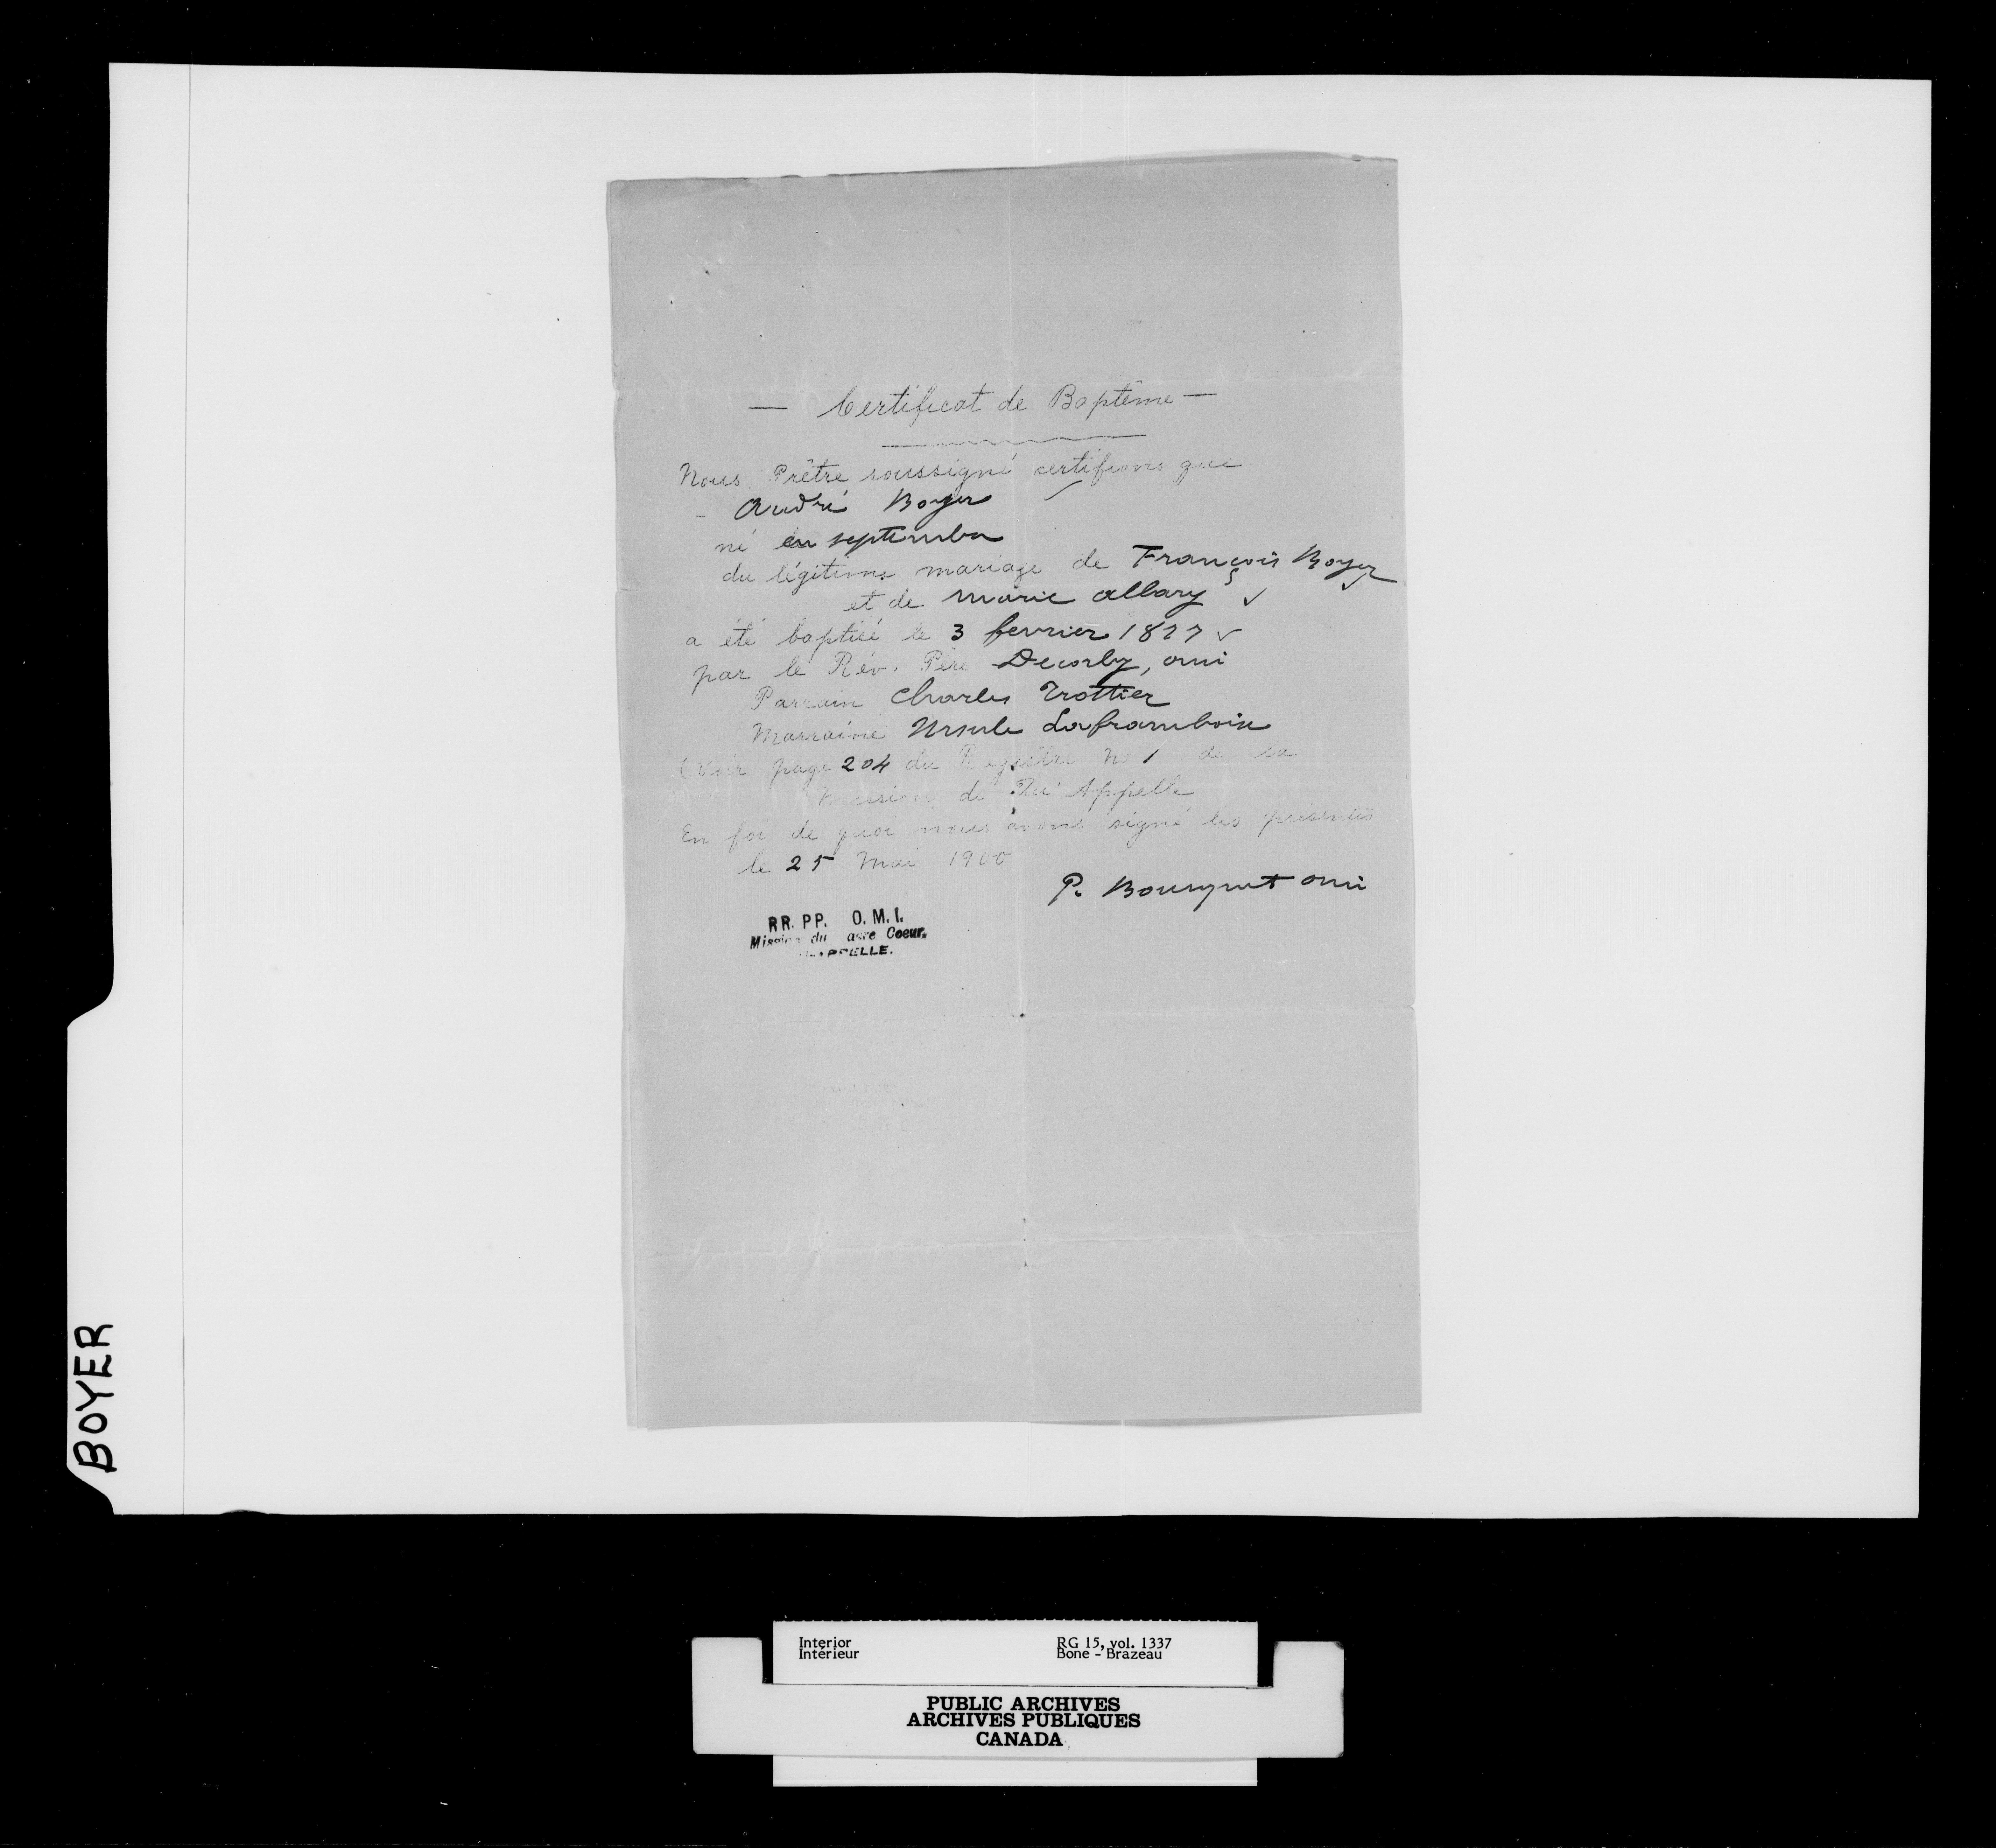 — Certificat de Baptême —
Nous Prêtre soussigné certifions que
André Boyer
né en septembre
du légitime mariage de François Boyer
et de Marie Allary
a été baptisé le 3 fevrier 1877
par le Rév. Père Decorby, omi
Parrain Charles Trottier
Marraine Ursule Laframboise
page 204 du Registre No 1 de la
Mission de Qu'Appelle
En foi de quoi nous avons signé les présentes
le 25 Mai 1900
P. Bousquet omi
RR. PP. O. M. I.
Mission du acre Coeur.
PPELLE.
BOYER
Interior
Intérieur
RG 15, vol. 1337
Bone - Brazeau
PUBLIC ARCHIVES
ARCHIVES PUBLIQUES
CANADA